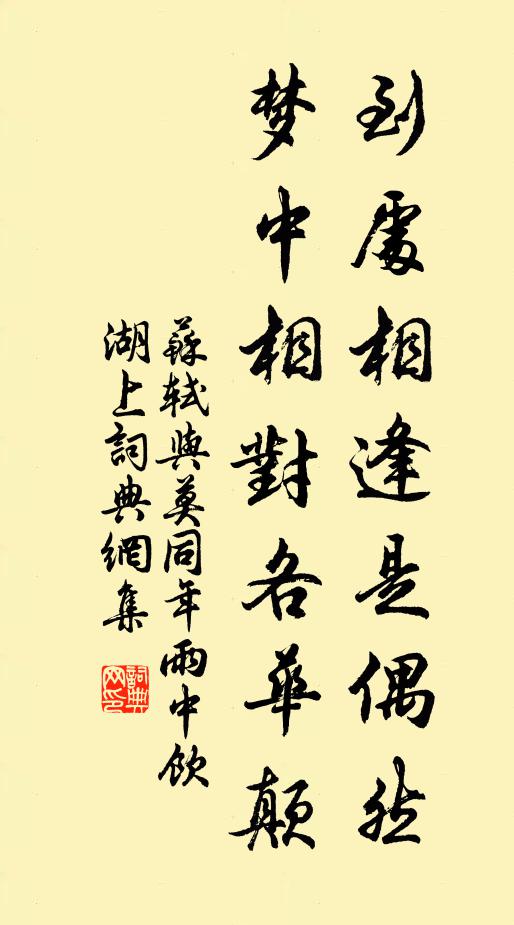 到處相逢是偶然
梦中相對各華顛
蘇軾與莫同年雨中飲
湖上詞典網集
詞典网印